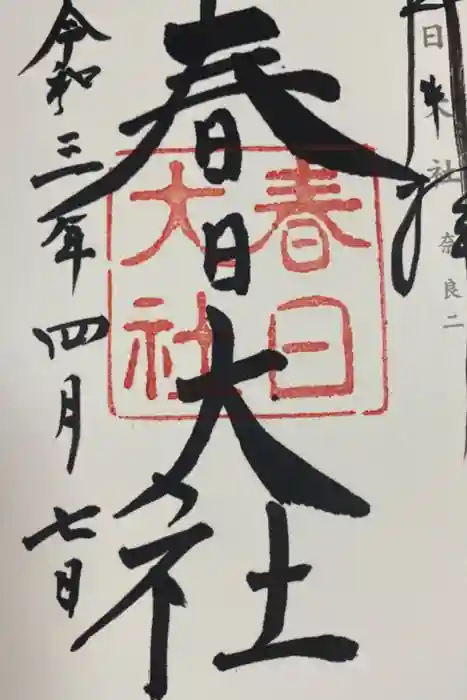 奉拝
日大社
奈良二
春日大社
春日
大社
令和三年四月七日